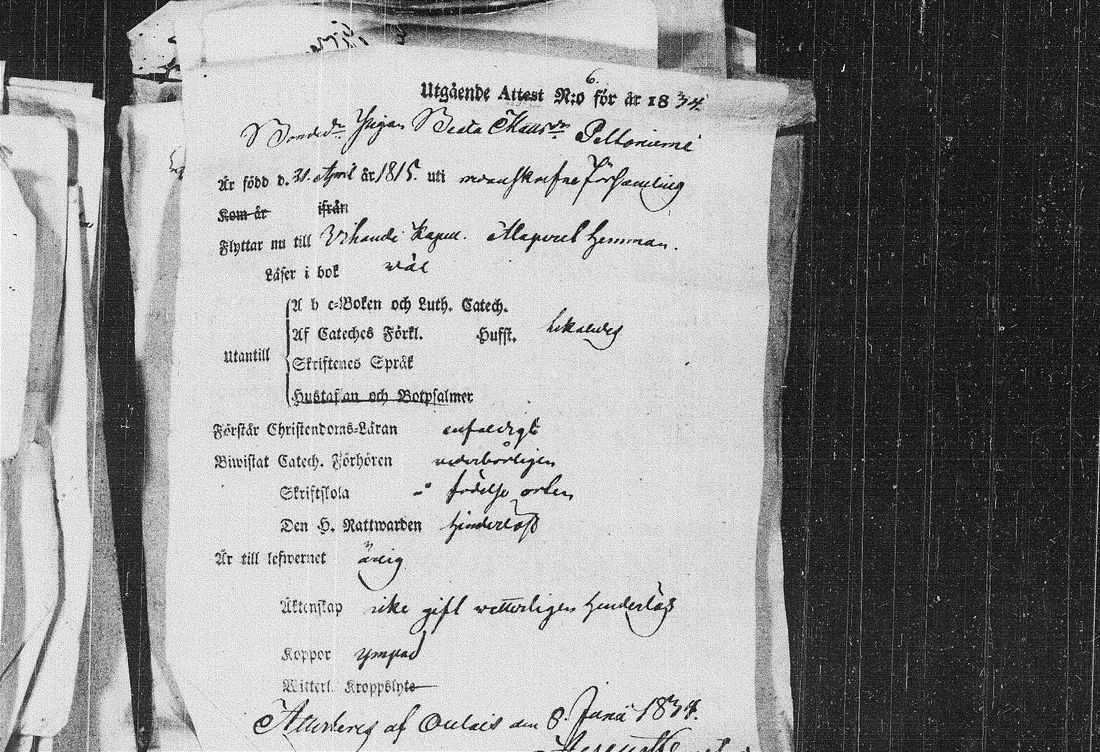 6.
Utgående Attest N:o för år 1834.
Bondedr Pigan Beata Mattsdr Peltoniemi
Är född d. 21. April år 1815. uti ofvanskrefne Församling
Kom år ifrån
Flyttar nu till Vihandi Kapell. hemman.
Läser i bok wäl
A b c-Boken och Luth. Catech.
Af Cateches Förkl. Husst. likaledes
Utantill
Skriftenes Språk
Hustaflan och Botpsalmer
Förstår Christendoms-Läran enfaldigt
Biwistat Catech. Förhören wederbörligen
Skriftskola i födelse orten
Den H. Nattwarden hinderlöst
Är till lefwernet ärlig
Äktenskap icke gift witterligen hinderlös
Koppor ympad
Witterl. Kroppslyte
Attesteras af Oulais den 8. Junii 1834.